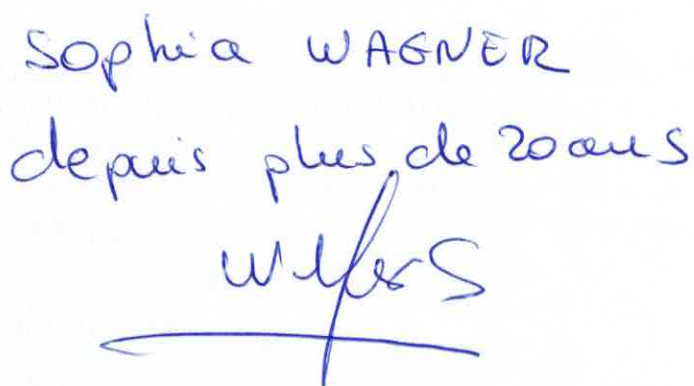 Sophia WAGNER
depuis plus de 20 ans